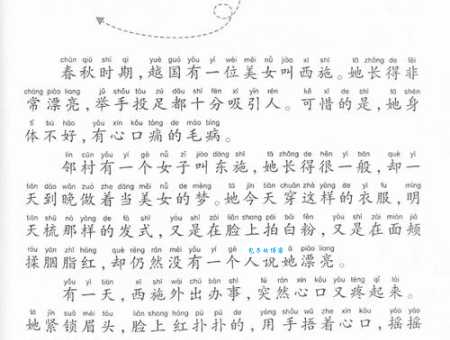 chūn qiū shí qī yuè guó yǒu yí wèi měi nǚ jiào xī shī tā zhǎng de fēi
春秋时期，越国有一位美女叫西施。她长得非
cháng piào liang jǔ shǒu tóu zú dōu shí fēn xī yǐn rén kě xī de shì tā shēn
常漂亮，举手投足都十分吸引人。可惜的是，她身
tǐ bù hǎo yǒu xīn kǒu tòng de máo bìng
体不好，有心口痛的毛病。
lín cūn yǒu yí gè nǚ zǐ jiào dōng shī tā zhǎng de hěn yì bān què yì
邻村有一个女子叫东施，她长得很一般，却一
tiān dào wǎn zuò zhe dāng měi nǚ de mèng tā jīn tiān chuān zhè yàng de yī fu míng
天到晚做着当美女的梦。她今天穿这样的衣服，明
tiān shū nà yàng de fà shì yòu shì zài liǎn shang pāi bái fěn yòu shì zài miàn jiá
天梳那样的发式，又是在脸上拍白粉，又是在面颊
róu yān zhī hóng què réng rán méi yǒu yí gè piào liang
揉胭脂红，却仍然没有一个人说她漂亮。
yǒu yì tiān xī shī wài chū bàn shì tū rán xīn kǒu yòu téng qǐ lái
有一天，西施外出办事，突然心口又疼起来。
tā jǐn suǒ méi tóu liǎn shang hóng pū pū de yòng shǒu wǔ zhe xīn kǒu yáo yáo
她紧锁眉头，脸上红扑扑的，用手捂着心口，摇摇